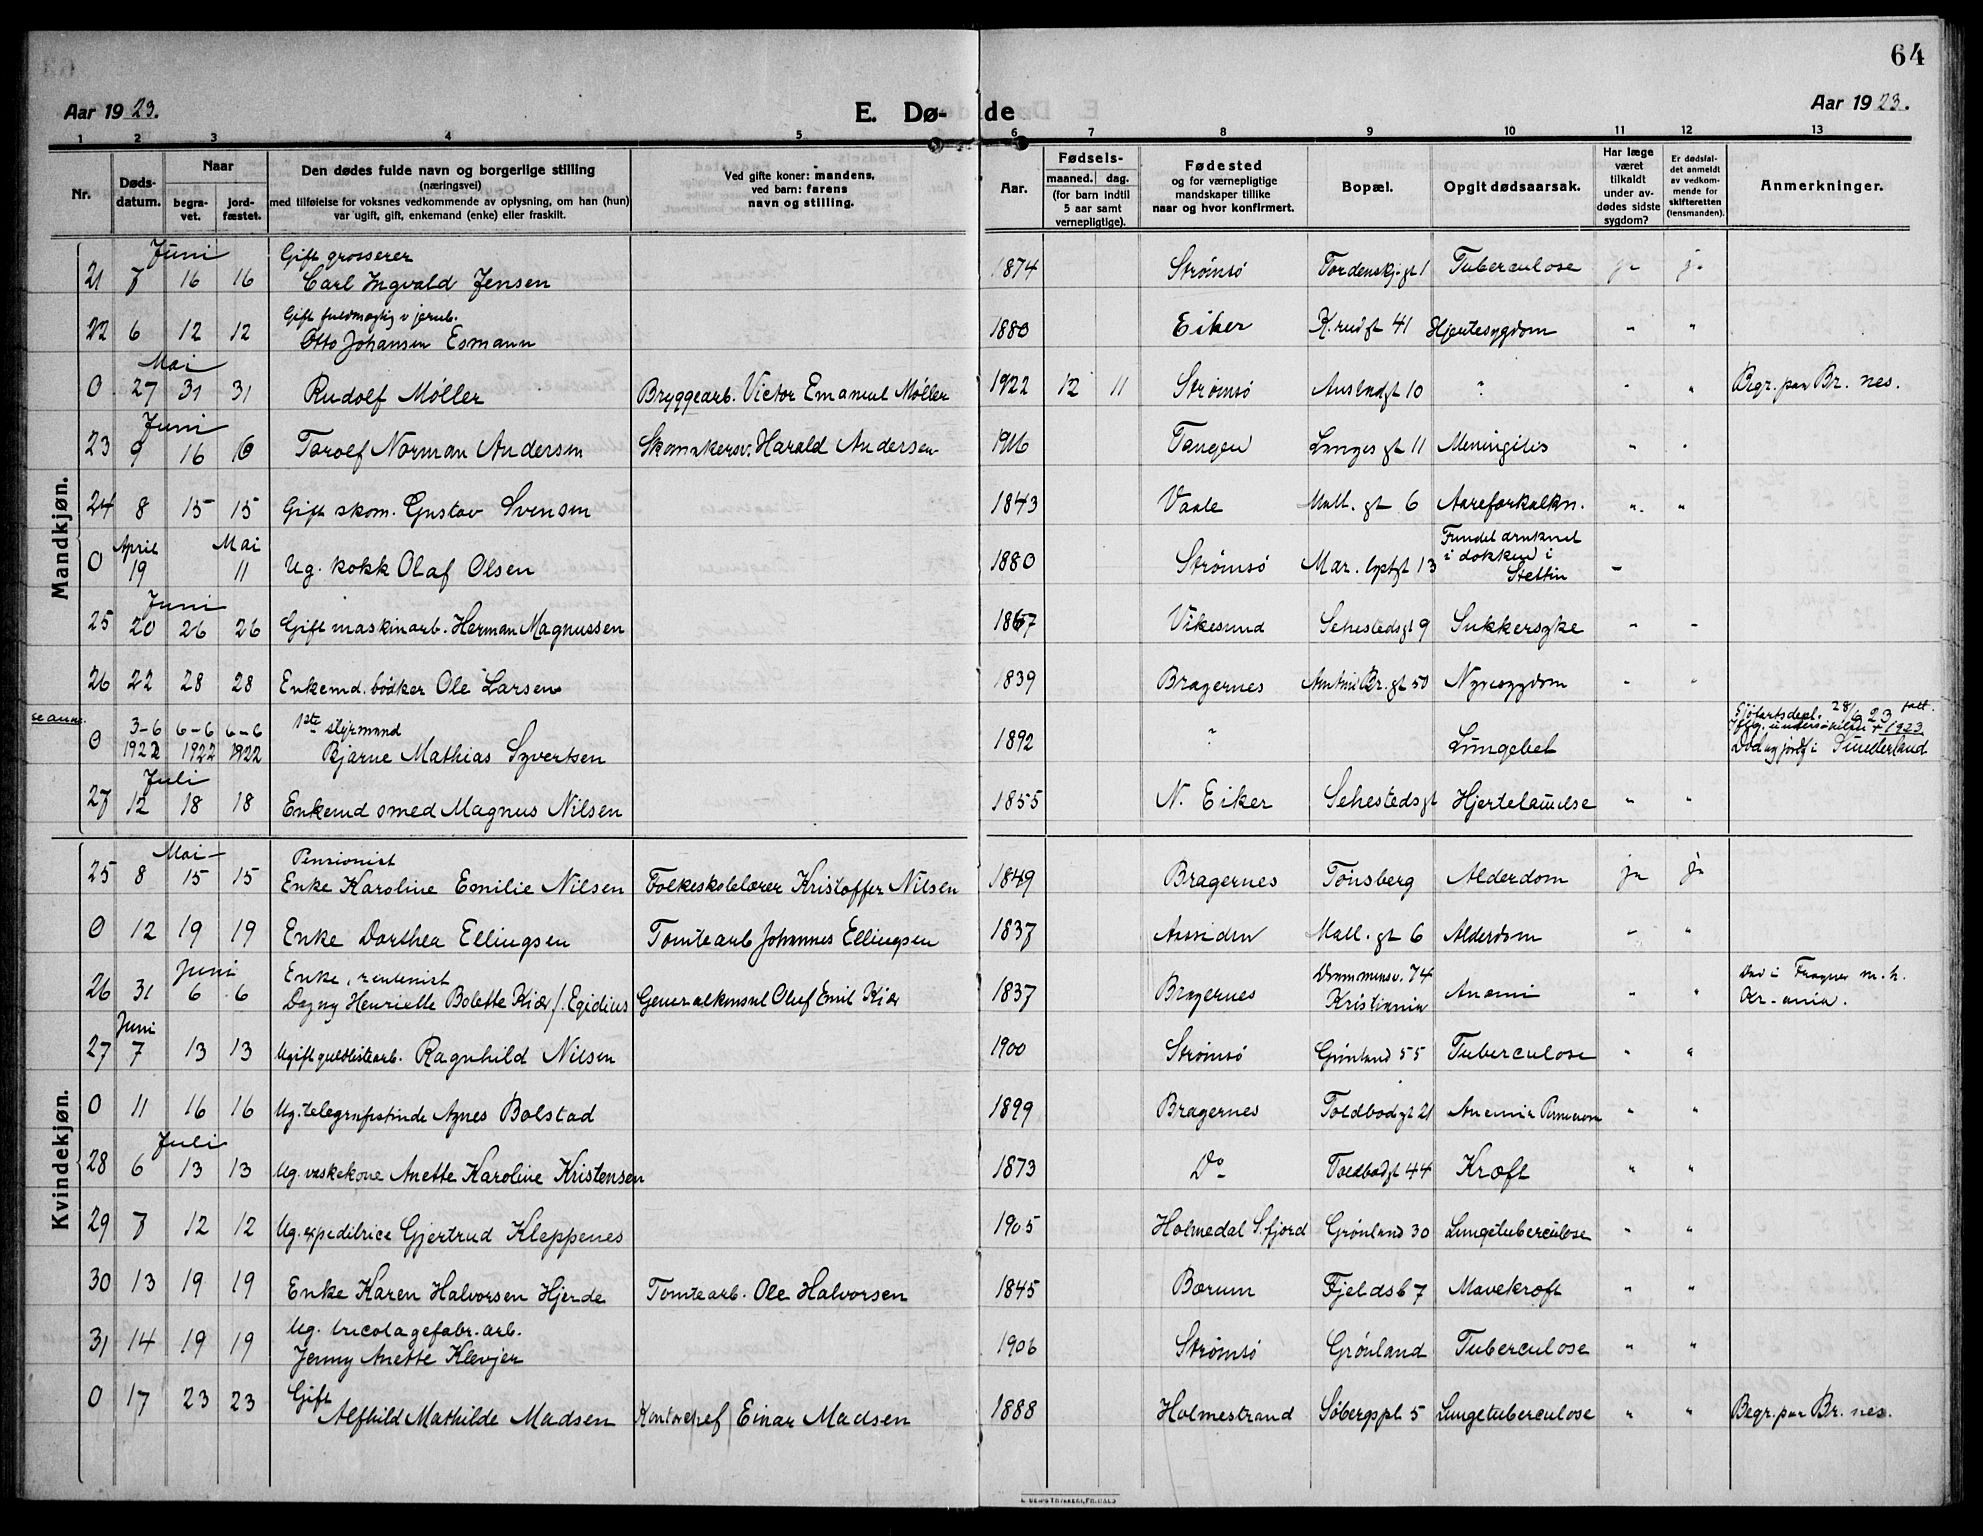 64
Aar 1923.
E. Dø-
de
Aar 1923.
1 2 3 4 5 6 7 8 9 10 11 12 13
Nr.
Døds-
datum.
Naar
begra-
vet.
jord-
fæstet.
Den dødes fulde navn og borgerlige stilling
(næringsvei)
med tilføielse for voksnes vedkommende av oplysning, om han (hun)
var ugift, gift, enkemand (enke) eller fraskilt.
Ved gifte koner: mandens,
ved barn: farens
navn og stilling.
Aar.
Fødsels-
maaned. dag.
(for barn indtil
5 aar samt
vernepligtige).
Fødested
og for værnepligtige
mandskaper tillike
naar og hvor konfirmert.
Bopæl.
Opgit dødsaarsak.
Har læge
været
tilkaldt
under av-
dødes sidste
sygdom?
Er dødsfal-
det anmeldt
av vedkom-
mende for
skifteretten
(lensmanden).
Anmerkninger.
Mandkjøn.
Juni Gift grosserer
21 7 16 16 Carl Ingvald Jensen 1874 Strømsø Tordenskj. gt 1 Tuberculose ja ja
Gift fuldmægtig v jernb.
22 6 12 12 Otto Johansen Esmann 1880 Eiker K. rudgt 41 Hjertesygdom " "
Mai
0 27 31 31 Rudolf Møller Bryggearb. Victor Emanuel Møller 1922 12 11 Strømsø Ausladgt 10 " " " Begr. paa Br. nes.
Juni
23 9 16 16 Torolf Norman Andersen Skomakersv. Harald Andersen 1916 Tangen Langes gt 11 Meningitis " "
24 8 15 15 Gift skom. Gustav Svensen 1843 Vaale Mall. gt 6 Aareforkalkn. " "
April Mai Fundet druknet
0 19 11 Ug. kokk Olaf Olsen 1880 Strømsø Mar. 13 i dokken i
Stettin -
Juni
25 20 26 26 Gift maskinarb. Herman Magnussen 1867 Vikesund Sehestedsgt 9 Sukkersyke " "
26 22 28 28 Enkemd. bødker Ole Larsen 1839 Bragernes Br. gt 50 Nyresygdom " "
se anm. 3-6 6-6 6-6 1ste styrmand Sjøfartsdept. 28/6 23
0 1922 1922 1922 Bjarne Mathias Syvertsen 1892 " Lungebet 1923
Død og jordf i Sunderland
Juli
27 12 18 18 Enkemd smed Magnus Nilsen 1855 N. Eiker Sehestedsgt Hjertelammelse " "
Kvindekjøn.
Mai Pensionist
25 8 15 15 Enke Karoline Emilie Nilsen Folkeskolelærer Kristoffer Nilsen 1849 Bragernes Tønsberg Alderdom ja ja
0 12 19 19 Enke Dorthea Ellingsen Tomtearb Johannes Ellingsen 1837 Assiden Mall. gt 6 Alderdom " "
Juni Enke, rentenist Drammensv. 74 Død i Frogner m. h.
26 31 6 6 Dagny Henriette Bolette Kiær f. Egidius Generalkonsul Oluf Emil Kiær 1837 Bragernes Kristiania Anæmi " " Kr-ania.
Juni
27 7 13 13 Ugift guldlistearb. Ragnhild Nilsen 1900 Strømsø Grønland 55 Tuberculose " "
0 11 16 16 Ug. telegrafistinde Agnes Bolstad 1899 Bragernes Toldbodgt 21 Anemia " "
Juli
28 6 13 13 Ug. vaskekone Anette Karoline Kristensen 1873 Do Toldbodgt 44 Kræft " "
29 7 12 12 Ug. expeditrice Gjertrud Kleppenes 1905 Holmedal S. fjord Grønland 30 Lungetuberculose " "
30 13 19 19 Enke Karen Halvorsen Hjerde Tomtearb. Ole Halvorsen 1845 Bærum Fjeldsb 7 Mavekræft " "
Ug. tricotagefabr. arb.
31 14 19 19 Jenny Anette Klevjer 1906 Strømsø Grønland Tuberculose " "
Gift
0 17 23 23 Alfhild Mathilde Madsen Kontorchef Einar Madsen 1888 Holmestrand Søbergspl 5 Lungetuberculose " " Begr. paa Br. nes.